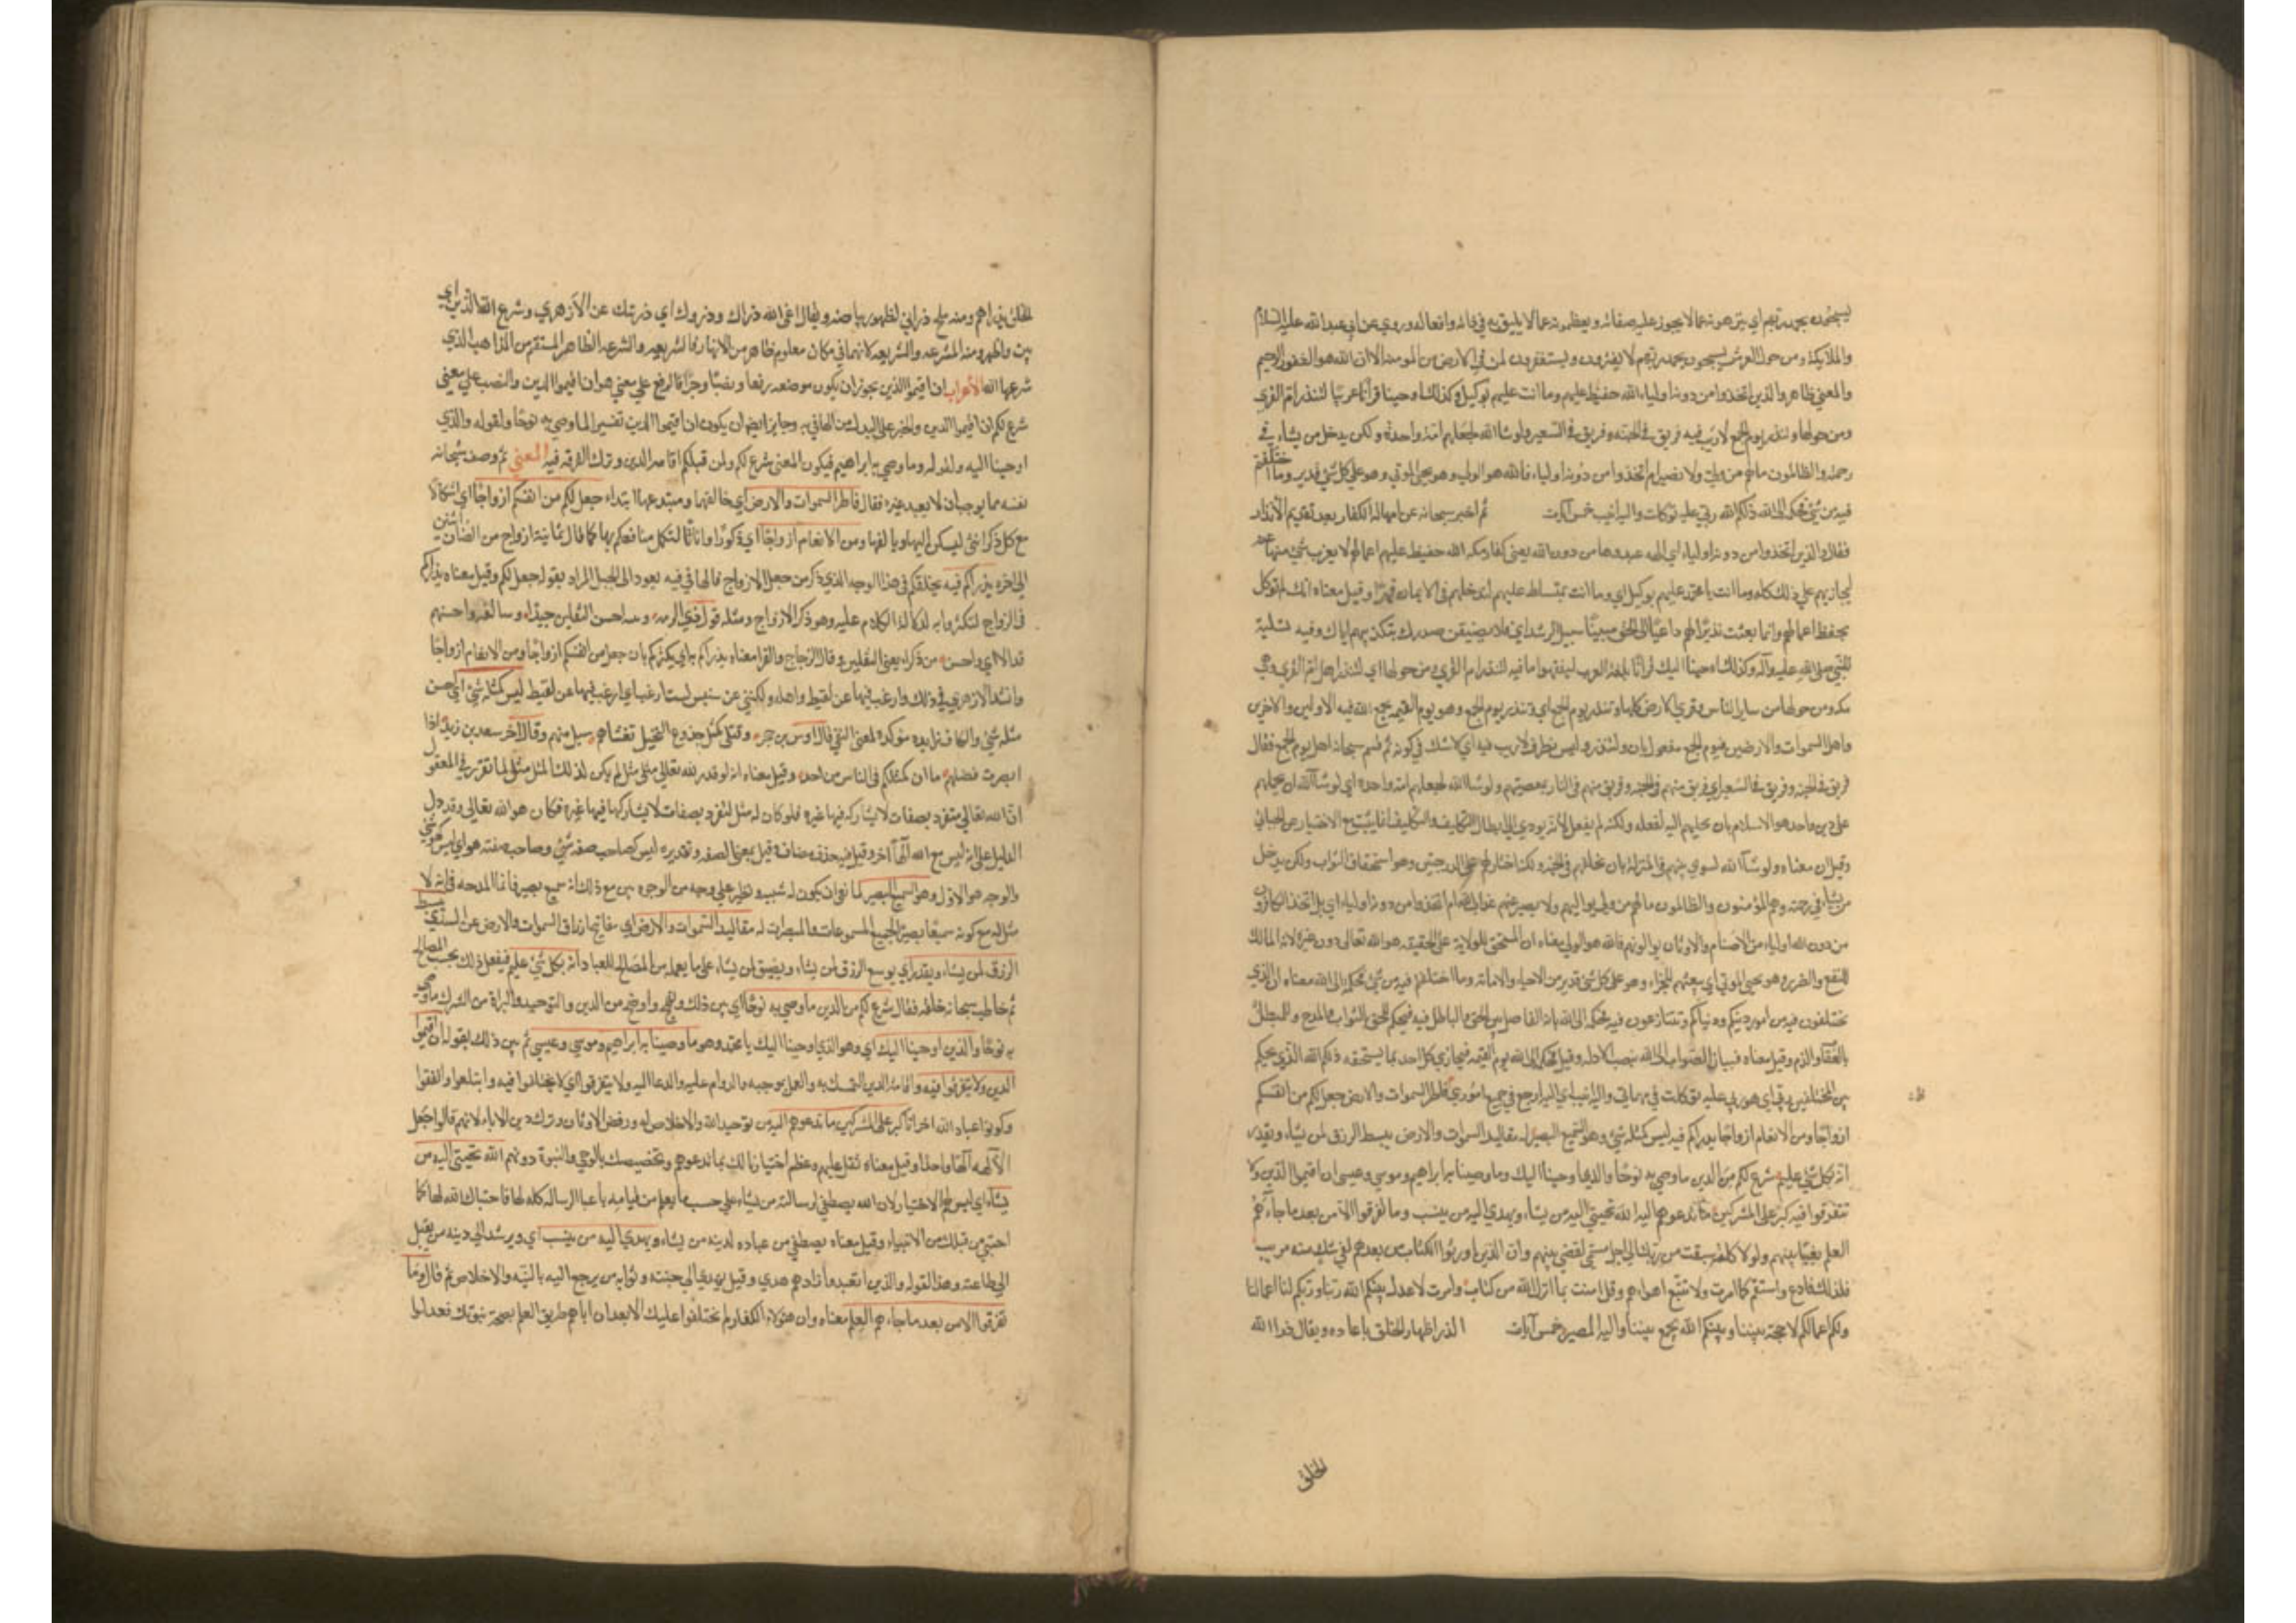 يسبحون بحمد ربهم اي ينزهونه عما لا يجوز عليه من صفاته ويعظمونه عما لا يليق به في ذاته وافعاله وروي عن ابي عبد الله عليه السلام
والملايكة ومن حول العرش يسبحون بحمد ربهم لا يفترون ويستغفرون لمن في الارض من المومنين الا ان الله هو الغفور الرحيم
والمعني ظاهر والذين اتخذوا من دونه اولياء الله حفيظ عليهم وما انت عليهم بوكيل وكذلك اوحينا قرآنا عربيا لتنذر ام القري
ومن حولها وتنذر يوم الجمع لا ريب فيه فريق في الجنه وفريق في السعير ولو شا الله لجعلهم امة واحدة ولكن يدخل من يشاء في
رحمته والظالمون ما لهم من ولي ولا نصير ام اتخذوا من دونه اولياء فالله هو الولي وهو يحيي الموتي وهو علي كل شئ قدير وما اختلفتم
فيه من شئ فحكمه الي الله ذلكم الله ربي عليه توكلت واليه انيب خمس آيات ثم اخبر سبحانه عن امهاله الكفار بعد تقديم الانذار
فقال والذين اتخذوا من دونه اولياء اي الهه عبدوها من دون الله يعني كفار مكه الله حفيظ عليهم اعمالهم لا يعزب شئ منها عنه
ليجازيهم علي ذلك كله وما انت يا محمد عليهم بوكيل اي وما انت بمسلط عليهم لتدخلهم في الايمان قهرا وقيل معناه انك لم توكل
بحفظ اعمالهم وانما بعثت نذيرا لهم داعيا الي الحق مبينا سبيل الرشد اي فلا يضيقن صدرك بتكذيبهم اياك وفيه تسلية
للنبي صلي الله عليه وآله وكذلك اوحينا اليك قرآنا بلغة العرب ليفقهوا ما فيه لتنذر ام القري ومن حولها اي لتنذر اهل ام القري وهي
مكه ومن حولها من ساير الناس وقري الارض كلها وتنذر يوم الجمع اي وتنذر يوم الجمع وهو يوم القيمه يجمع الله فيه الاولين والاخرين
واهل السموات والارضين فيوم الجمع مفعول ثان ولتنذر وليس بظرف لا ريب فيه اي لا شك في كونه ثم قسم سبحانه اهل يوم الجمع فقال
فريق في الجنه وفريق في السعير اي فريق منهم في الجنه وفريق منهم في النار بمعصيتهم ولو شا الله لجعلهم امة واحدة اي لو شا الله ان يحملهم
علي دين واحد هو الاسلام بان يلجيهم اليه لفعله ولكنه لم يفعل لانه يودي الي ابطال التكليف والتكليف انما يثبت مع الاختيار عن الجبائي
وقيل ان معناه ولو شآ الله لسوي بينهم في المنزلة بان يخلقهم في الجنه ولكنه اختار لهم علي الدرجتين وهو استحقاق الثواب ولكن يدخل
من يشاء في رحمته وهم المؤمنون والظالمون ما لهم من ولي يواليهم ولا نصير يمنعهم عذاب الله ام اتخذوا من دونه اولياء اي بل اتخذ الكافرون
من دون الله اولياء من الاصنام والاوثان يوالونهم فالله هو الولي معناه ان المستحق للولاية علي الحقيقه هو الله تعالي دون غيره لانه المالك
للنفع والضرر وهو يحيي الموتي اي يبعثهم للجزاء وهو علي كل شئ قدير من الاحياء والاماته وما اختلفتم فيه من شئ فحكمه الي الله معناه ان الذي
تختلفون فيه من امور دينكم ودنياكم وتتنازعون فيه فحكمه الي الله فانه الفاصل بين الحق والباطل فيه فيحكم للمحق بالثواب والمدح وللمبطل
بالعقاب والذم وقيل معناه فبيان الصواب الي الله بنصب الادله وقيل فحكمه الي الله يوم القيمه فيجازي كل احد بما يستحقه ذلكم الله الذي يحكم
بين المختلفين ربي اي هو ربي عليه توكلت في مهماتي واليه انيب اي اليه ارجع في جميع اموري فاطر السموات والارض جعل لكم من انفسكم
ازواجا ومن الانعام ازواجا يذرؤكم فيه ليس كمثله شئ وهو السميع البصير له مقاليد السموات والارض يبسط الرزق لمن يشاء ويقدر
انه بكل شئ عليم شرع لكم من الدين ما وصي به نوحا والذي اوحينا اليك وما وصينا به ابراهيم وموسي وعيسي ان اقيموا الدين ولا
تتفرقوا فيه كبر علي المشركين ما تدعوهم اليه الله يجتبي اليه من يشاء ويهدي اليه من ينيب وما تفرقوا الا من بعد ما جاءهم
العلم بغيا بينهم ولولا كلمة سبقت من ربك الي اجل مسمي لقضي بينهم وان الذين اورثوا الكتاب من بعدهم لفي شك منه مريب
فلذلك فادع واستقم كما امرت ولا تتبع اهواءهم وقل امنت بما انزل الله من كتاب وامرت لاعدل بينكم الله ربنا وربكم لنا اعمالنا
ولكم اعمالكم لا حجة بيننا وبينكم الله يجمع بيننا واليه المصير خمس آيات الذرء اظهار الخلق بايجاده ويقال ذرا الله
الخلق
الخلق يذراهم ومنه ملح ذراني لظهور بياضه ويقال انمي الله ذراك وذروك اي ذريتك عن الازهري وشرع الله الدين اي
بين واظهر ومنه المشرعه والشريعه لانهما في مكان معلوم ظاهر من الانهار فالشريعه والشرعه الظاهر المستقيم من المذاهب الذي
شرعها الله الاعراب ان اقيموا الدين يجوز ان يكون موضعه رفعا ونصبا وجرا فالرفع علي معني هو ان اقيموا الدين والنصب علي معني
شرع لكم ان اقيموا الدين والجر علي البدل من الهافي به وجايز ايضا ان يكون ان اقيموا الدين تفسيرا لما وصي به نوحا ولقوله والذي
اوحينا اليه ولقوله وما وصي به ابراهيم فيكون المعني شرع لكم ولمن قبلكم اقامة الدين وترك الفرقه فيه المعني ثم وصف سبحانه
نفسه بما يوجب ان لا يعبد غيره فقال فاطر السموات والارض اي خالقهما ومبتدعهما ابتداء جعل لكم من انفسكم ازواجا اي اشكالا
مع كل ذكر انثي ليسكن اليها ويالفها ومن الانعام ازواجا اي ذكورا واناثا لتكمل منافعكم بها كما قال ثمانية ازواج من الضان اثنين
الي اخره يذرؤكم فيه يخلقكم في هذا الوجه الذي ذكر من جعل الازواج فالها في فيه يعود الي الجعل المراد بقوله جعل لكم وقيل معناه يذراكم
في الزواج لتكثروا به لدلالة الكلام عليه وهو ذكر الازواج ومثله قول ذي الرمه ومية احسن الثقلين جيدا وسالفة واحسنهم
قذالا اي واحسن من ذكر يعني الثقلين وقال الزجاج والفرا معناه يذراكم به اي يكثركم بان جعل من انفسكم ازواجا ومن الانعام ازواجا
وانشد الازهري في ذلك وارغب فيها عن لقيط واهله ولكنني عن سنبس لست ارغب اي ارغب فيها عن لقيط ليس كمثله شئ اي ليس
مثله شئ والكاف زايده موكدة لمعني النفي قال اوس بن حجر وقتلي كمثل جذوع النخيل تغشاهم سبل منهمر وقال اخر سعد بن زيد اذا
ابصرت فضلهم ما ان كمثلكم في الناس من احد وقيل معناه انه لو قدر لله تعالي مثل مثل لم يكن لذلك المثل مثل لما تقرر في المعقول
ان الله تعالي متفرد بصفات لا يشاركه فيها غيره فلو كان له مثل لتفرد بصفات لا يشاركها فيها غيره فكان هو الله تعالي وقد دل
الدليل علي انه ليس مع الله آلها آخر وقيل فيه حذف مضاف وقيل بمعني الصفه وتقديره ليس كصاحب صفه شئ وصاحب صفته هو اي ليس كهو شئ
والوجه هو الاول وهو السميع البصير لما نفي ان يكون له شبيه ونظير علي وجه من الوجوه بين مع ذلك انه سميع بصير فانما المدحه في انه لا
مثل له مع كونه سميعا بصيرا لجميع المسموعات والمبصرات له مقاليد السموات والارض اي مفاتيح ارزاق السموات والارض عن السدي يبسط
الرزق لمن يشاء ويقدر اي يوسع الرزق لمن يشاء ويضيق لمن يشاء علي ما يعلمه من المصالح للعباد انه بكل شئ عليم فيفعل ذلك بحسب المصالح
ثم خاطب سبحانه خلقه فقال شرع لكم من الدين ما وصي به نوحا اي بين ذلك ونهج واوضح من الدين والتوحيد والبراة من الشرك ما وصي
به نوحا والذي اوحينا اليك اي وهو الذي اوحينا اليك يا محمد وهو ما وصينا به ابراهيم وموسي وعيسي ثم بين ذلك بقوله ان اقيموا
الدين ولا تتفرقوا فيه واقامة الدين التمسك به والعمل بموجبه والدوام عليه والدعا اليه ولا تتفرقوا اي لا تختلفوا فيه وايتلفوا واتفقوا
وكونوا عباد الله اخوانا كبر علي المشركين ما تدعوهم اليه من توحيد الله والاخلاص له ورفض الاوثان وترك دين الاباء لانهم قالوا اجعل
الآلهه آلها واحدا وقيل معناه ثقل عليهم وعظم اختيارنا لك بما تدعوهم وتخصيصك بالوحي والنبوة دونهم الله يجتبي اليه من
يشاء اي ليس لهم الاختيار لان الله يصطفي لرسالته من يشاء علي حسب ما يعلم من قيامه باعباء الرساله كله لها فاجتباك الله لها كما
اجتبي من قبلك من الانبياء وقيل معناه يصطفي من عباده لدينه من يشاء ويهدي اليه من ينيب اي ويرشد الي دينه من يقبل
الي طاعته وهذا لقوله والذين اهتدوا زادهم هدي وقيل يهدي الي جنته وثوابه من يرجع اليه بالنيه والاخلاص ثم قال وما
تفرقوا الا من بعد ما جاءهم العلم معناه وان هؤلاء الكفار لم يختلفوا عليك الا بعد ان اتاهم طريق العلم بصحة نبوتك فعدلوا